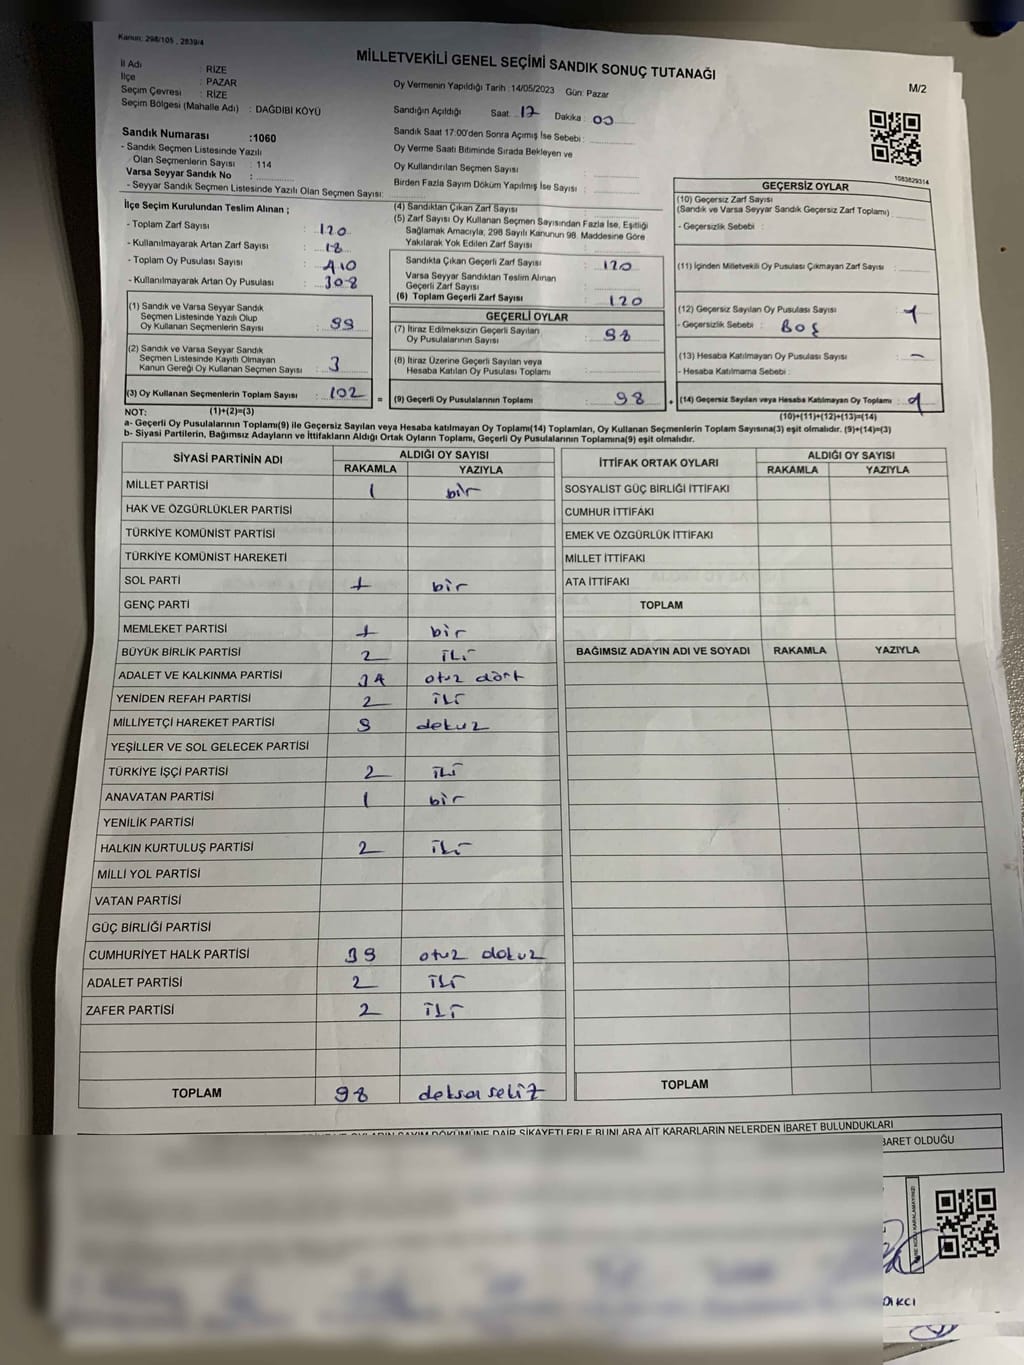 Kanun: 298/105 , 2839/4
MİLLETVEKİLİ GENEL SEÇİMİ SANDIK SONUÇ TUTANAĞI
M/2
İl Adı : RİZE
İlçe : PAZAR
Seçim Çevresi : RİZE
Seçim Bölgesi (Mahalle Adı) : DAĞDIBI KÖYÜ
Oy Vermenin Yapıldığı Tarih : 14/05/2023 Gün: Pazar
Sandığın Açıldığı Saat 17 Dakika 00
Sandık Saat 17:00'den Sonra Açımış İse Sebebi :
Oy Verme Saati Bitiminde Sırada Bekleyen ve
Oy Kullandırılan Seçmen Sayısı :
Birden Fazla Sayım Döküm Yapılmış İse Sayısı :
1083829314
Sandık Numarası :1060
- Sandık Seçmen Listesinde Yazılı
Olan Seçmenlerin Sayısı : 114
Varsa Seyyar Sandık No :
- Seyyar Sandık Seçmen Listesinde Yazılı Olan Seçmen Sayısı:
İlçe Seçim Kurulundan Teslim Alınan ;
- Toplam Zarf Sayısı : 120
- Kullanılmayarak Artan Zarf Sayısı : 18
- Toplam Oy Pusulası Sayısı : 410
- Kullanılmayarak Artan Oy Pusulası : 308
(1) Sandık ve Varsa Seyyar Sandık
Seçmen Listesinde Yazılı Olup
Oy Kullanan Seçmenlerin Sayısı : 99
(2) Sandık ve Varsa Seyyar Sandık
Seçmen Listesinde Kayıtlı Olmayan
Kanun Gereği Oy Kullanan Seçmen Sayısı : 3
(3) Oy Kullanan Seçmenlerin Toplam Sayısı : 102 =
(4) Sandıktan Çıkan Zarf Sayısı
(5) Zarf Sayısı Oy Kullanan Seçmen Sayısından Fazla İse, Eşitliği
Sağlamak Amacıyla, 298 Sayılı Kanunun 98. Maddesine Göre
Yakılarak Yok Edilen Zarf Sayısı :
Sandıkta Çıkan Geçerli Zarf Sayısı : 120
Varsa Seyyar Sandıktan Teslim Alınan
Geçerli Zarf Sayısı :
(6) Toplam Geçerli Zarf Sayısı : 120
GEÇERLİ OYLAR
(7) İtiraz Edilmeksizin Geçerli Sayılan
Oy Pusulalarının Sayısı : 98
(8) İtiraz Üzerine Geçerli Sayılan veya
Hesaba Katılan Oy Pusulası Toplamı :
(9) Geçerli Oy Pusulalarının Toplamı : 98 +
GEÇERSİZ OYLAR
(10) Geçersiz Zarf Sayısı
(Sandık ve Varsa Seyyar Sandık Geçersiz Zarf Toplamı) :
- Geçersizlik Sebebi :
(11) İçinden Milletvekili Oy Pusulası Çıkmayan Zarf Sayısı :
(12) Geçersiz Sayılan Oy Pusulası Sayısı : 1
- Geçersizlik Sebebi : BOŞ
(13) Hesaba Katılmayan Oy Pusulası Sayısı : -
- Hesaba Katılmama Sebebi :
(14) Geçersiz Sayılan veya Hesaba Katılmayan Oy Toplamı :
NOT: (1)+(2)=(3)
(10)+(11)+(12)+(13)=(14)
a- Geçerli Oy Pusulalarının Toplamı(9) ile Geçersiz Sayılan veya Hesaba katılmayan Oy Toplamı(14) Toplamları, Oy Kullanan Seçmenlerin Toplam Sayısına(3) eşit olmalıdır. (9)+(14)=(3)
b- Siyasi Partilerin, Bağımsız Adayların ve İttifakların Aldığı Ortak Oyların Toplamı, Geçerli Oy Pusulalarının Toplamına(9) eşit olmalıdır.
SİYASİ PARTİNİN ADI ALDIĞI OY SAYISI
RAKAMLA YAZIYLA
MİLLET PARTİSİ 1 bir
HAK VE ÖZGÜRLÜKLER PARTİSİ
TÜRKİYE KOMÜNİST PARTİSİ
TÜRKİYE KOMÜNİST HAREKETİ
SOL PARTİ 1 bir
GENÇ PARTİ
MEMLEKET PARTİSİ 1 bir
BÜYÜK BİRLİK PARTİSİ 2 iki
ADALET VE KALKINMA PARTİSİ 34 otuz dört
YENİDEN REFAH PARTİSİ 2 iki
MİLLİYETÇİ HAREKET PARTİSİ 9 dokuz
YEŞİLLER VE SOL GELECEK PARTİSİ
TÜRKİYE İŞÇİ PARTİSİ 2 iki
ANAVATAN PARTİSİ 1 bir
YENİLİK PARTİSİ
HALKIN KURTULUŞ PARTİSİ 2 iki
MİLLİ YOL PARTİSİ
VATAN PARTİSİ
GÜÇ BİRLİĞİ PARTİSİ
CUMHURİYET HALK PARTİSİ 39 otuz dokuz
ADALET PARTİSİ 2 iki
ZAFER PARTİSİ 2 iki
TOPLAM 98 doksan sekiz
İTTİFAK ORTAK OYLARI ALDIĞI OY SAYISI
RAKAMLA YAZIYLA
SOSYALİST GÜÇ BİRLİĞİ İTTİFAKI
CUMHUR İTTİFAKI
EMEK VE ÖZGÜRLÜK İTTİFAKI
MİLLET İTTİFAKI
ATA İTTİFAKI
TOPLAM
BAĞIMSIZ ADAYIN ADI VE SOYADI RAKAMLA YAZIYLA
TOPLAM
SAYIM DÖKÜMÜNE DAİR ŞİKAYETLERLE BUNLARA AİT KARARLARIN NELERDEN İBARET BULUNDUKLARI
BARET OLDUĞU